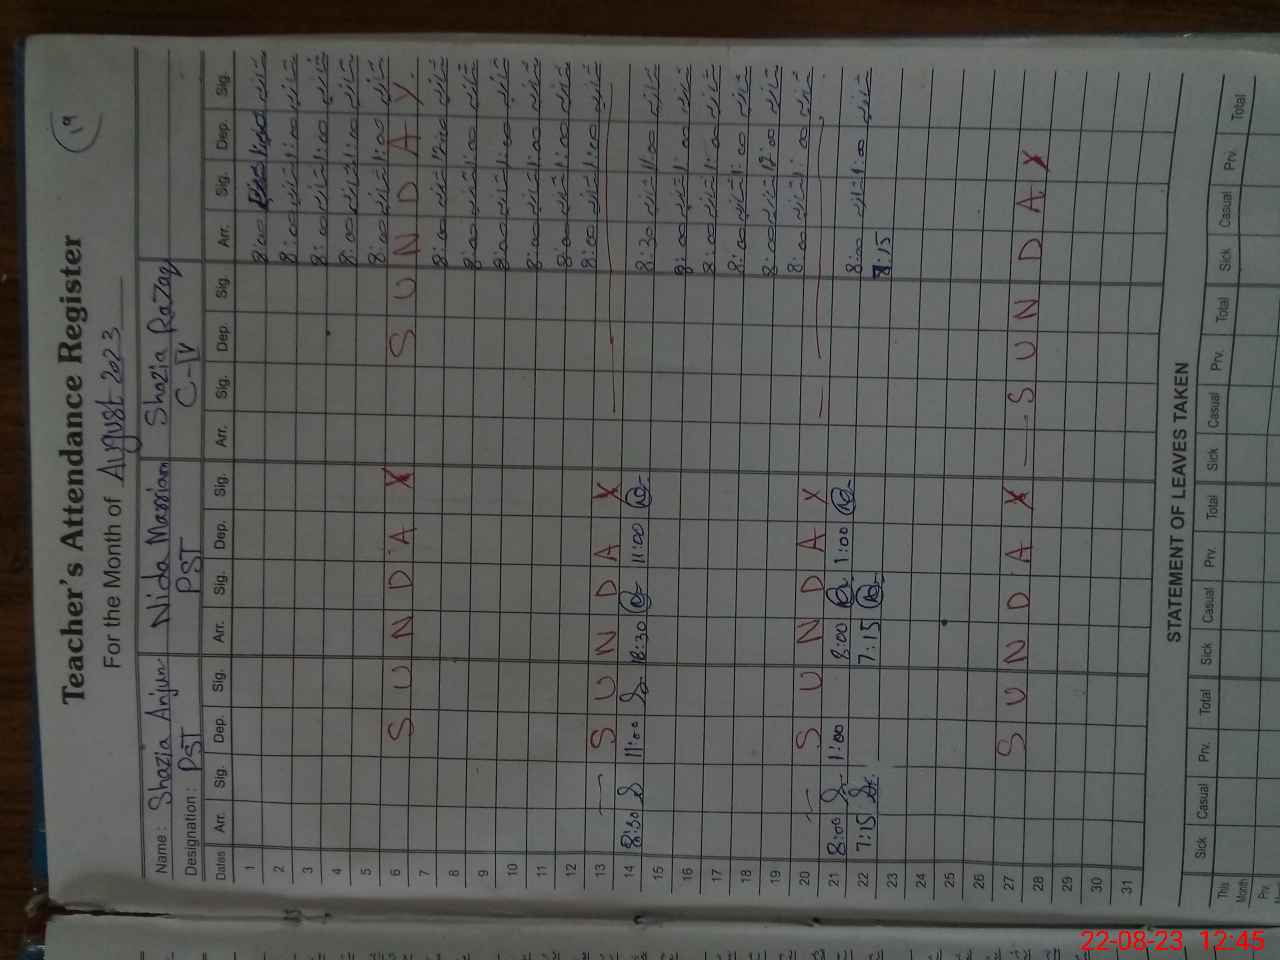 19
Teacher's Attendance Register
For the Month of August 2023
Name: Shazia Anjum Nida Marriam Shazia Razaq
Designation: PST PST C-IV
Dates Arr. Sig. Dep. Sig. Arr. Sig. Dep. Sig. Arr. Sig. Dep. Sig. Arr. Sig. Dep. Sig.
1 8:00 1:00
2 8:00 1:00
3 8:00 1:00
4 8:00 1:00
5 8:00 1:00
6 SUNDAY SUNDAY
7 8:00 12:00
8 8:00 1:00
9 8:00 1:00
10 8:00 1:00
11 8:00 1:00
12 8:00 1:00
13 SUNDAY
14 8:30 11:00 8:30 11:00 8:30 11:00
15 8:00 1:00
16 8:00 1:00
17 8:00 1:00
18 8:00 12:00
19 8:00 1:00
20 SUNDAY
21 8:00 1:00 8:00 1:00 8:00 1:00
22 7:15 7:15 7:15
23
24
25
26
27 SUNDAY SUNDAY
28
29
30
31
STATEMENT OF LEAVES TAKEN
Sick Casual Prv. Total Sick Casual Prv. Total Sick Casual Prv. Total Sick Casual Prv. Total
This Month
Prv.
22-08-23 12:45